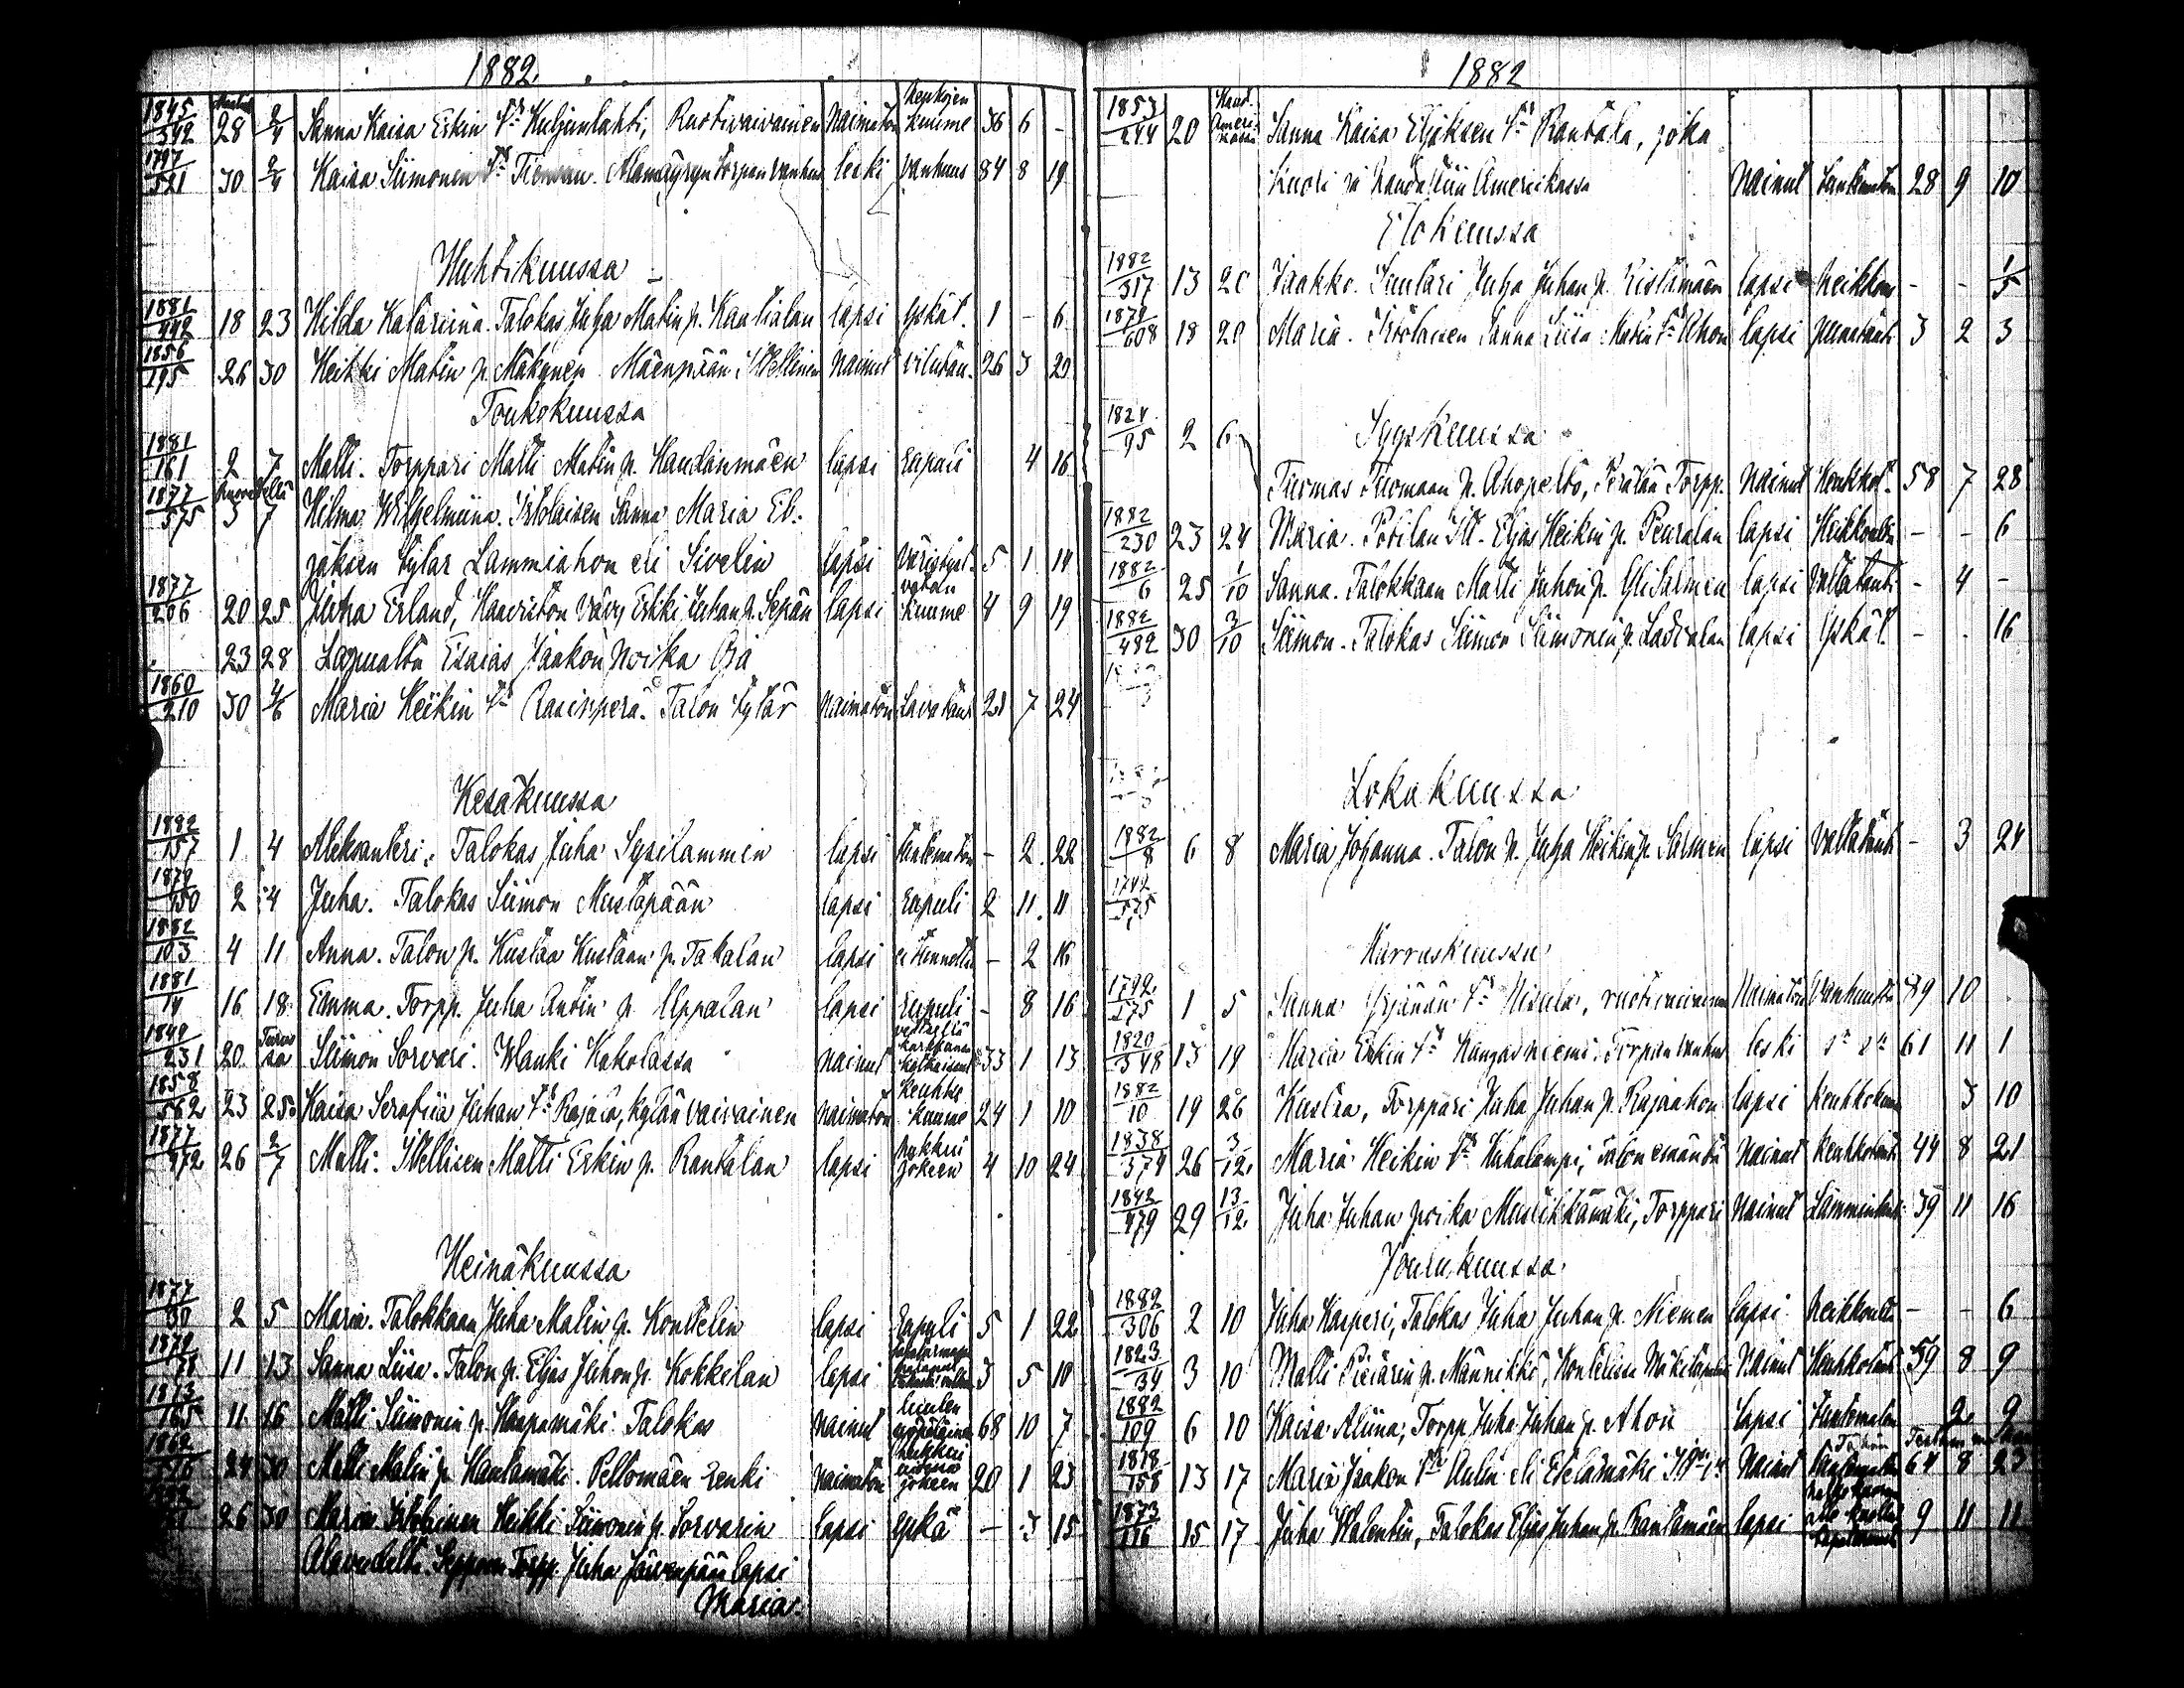 1882
1845/542 28 2/4 Sanna Kaisa Erkin tr Kuljunlahti, Ruotivaivainen Naimaton Keuhkojen kuume 36 6 -
1797/521 30 2/4 Kaisa Siimonin tr Alamäyryn Torpan vanhus leski vanhuus 84 8 19
Huhtikuussa
1881/442 18 23 Hilda Katariina. Talokas Juha Matin p. Kaatialan lapsi yskät. 1 - 6
1856/195 26 30 Heikki Matin p. Mäkynen Mäenpään Itsellinen nainut vilutau. 26 3 29
Toukokuussa
1881/161 2 7 Matti. Torppari Matti Matin p. Haudanmäen lapsi rapuli 4 16
1877/575 3 7 Hilma Wilhelmiina. Itsolaisen Sanna Maria El-
jaksen tytär Lammiahon eli Sivelin lapsi 5 1 14
1877/206 20 25 Juha Erland, Haaviston vävy Erkki Juhan p. Sepän lapsi kuume 4 9 19
23 28 Lapualta Esaias Jaakon poika Oja
1860/210 30 4/6 Maria Heikin tr Rasinperä. Talon tytär naimaton Lavatau 21 7 24
Kesäkuussa
1882/157 1 4 Aleksanteri. Talokas Juha Sysilammin lapsi tuntematon - 2 22
1879/ 2 4 Juha. Talokas Siimon Mustapään lapsi rapuli 2 11 11
1882/103 4 11 Anna. Talon p. Kustaa Kustaan p. Takalan lapsi ei tunnettu - 2 16
1881/14 16 18 Emma. Torpp. Juha Antin p. Uppalan lapsi Rapuli - 8 16
1849/231 20 Turussa Siimon Sorvari. Wanki Kakolassa nainut 33 1 13
1858/562 23 25 Kaisa Serafiia Juhan tr Rajala, kylän vaivainen naimaton keuhko kuume 24 1 10
1877/472 26 2/7 Matti. Itsellisen Matti Erkin p. Rantalan lapsi hukkui jokeen 4 10 24
Heinäkuussa
1877/80 2 5 Maria. Talokkaan Juha Matin p. Kontelin lapsi Rapuli 5 1 22
1879/ 11 13 Sanna Liisa. Talon p. Eljas Juhon p. Kokkelan lapsi 3 5 10
1813/165 11 16 Matti Siimonin p. Haapamäki. Talokas nainut 68 10 7
1862/ 24 30 Matti Matin p. Hautamäki. Peltomäen renki naimaton hukkui jokeen 20 1 23
26 30 Maria Itsolainen Heikki Siimonin p. Sorvarin lapsi yskä - 3 15
Alavudelta. Seppän Torpp. Juha Järvenpään lapsi
Maria.
1882
1853/244 20 Kuol. Amerikassa Sanna Kaisa Eljaksen tr Rantala, joka
kuoli ja haudattiin Amerikassa Nainut tuntematon 28 9 10
Elokuussa
1882/317 13 20 Jaakko. Suutari Juha Juhan p. Ristamäen lapsi heikkous - - 1/5
1879/608 18 20 Maria. Itsolaisen Sanna Liisa Matin tr Ahon lapsi punatauti 3 2 3
Syyskuussa
1824/95 2 6 Tuomas Tuomaan p. Ahopelto, Perälän Torpp. Nainut Keuhkot. 58 7 28
1882/230 23 24 Maria. Potilan Itl. Eljas Heikin p. Peuralan lapsi Heikkoutta - - 6
1882/6 25 1/10 Sanna. Talokkaan Matti Juhon p. Ylisalmen lapsi vatsatauti - 4 -
1882/482 30 3/10 Siimon. Talokas Siimon Siimonin p. Latvalan lapsi yskät - - 16
Lokakuussa
1882/8 6 8 Maria Johanna. Talon p. Juha Heikin p. Salmen lapsi vatsatauti - 3 24
1792/575
Marraskuussa
1792/575 1 5 Sanna Yrjänän tr Nisula, ruotivaivainen Naimaton Vanhuutta 89 10
1820/548 13 19 Maria Erkin tr Kangasniemi. Torpan vanhus leski sn sn 61 11 1
1882/10 19 26 Kustaa, Torppari Juha Juhan p. Rajaahon lapsi Keuhkokuume 3 10
1838/374 26 3/12 Maria Heikin tr Kuhalampi, talon emäntä Nainut keuhkotauti 44 8 21
1842/479 29 13/12 Juha Juhan poika Mustikkamäki, Torppari Nainut Lämmintauti 39 11 16
Joulukuussa
1882/306 2 10 Juha Kasperi, Talokas Juha Juhan p. Niemen lapsi heikkoutta - - 6
1823/34 3 10 Matti Pietarin p. Männikkö, Nainut Keuhkotauti 59 8 9
1882/109 6 10 Kaisa Aliina, Torpp. Juha Juhan p. Ahon lapsi Tuntematon 2 9
1818/158 13 17 Maria Jaakon tr Aulin eli Etelämäki Nainut Tuntematon 64 8 23
1873/116 15 17 Juha Valentin, Talokas Eljas Juhan p. Rantamäen lapsi 9 11 11